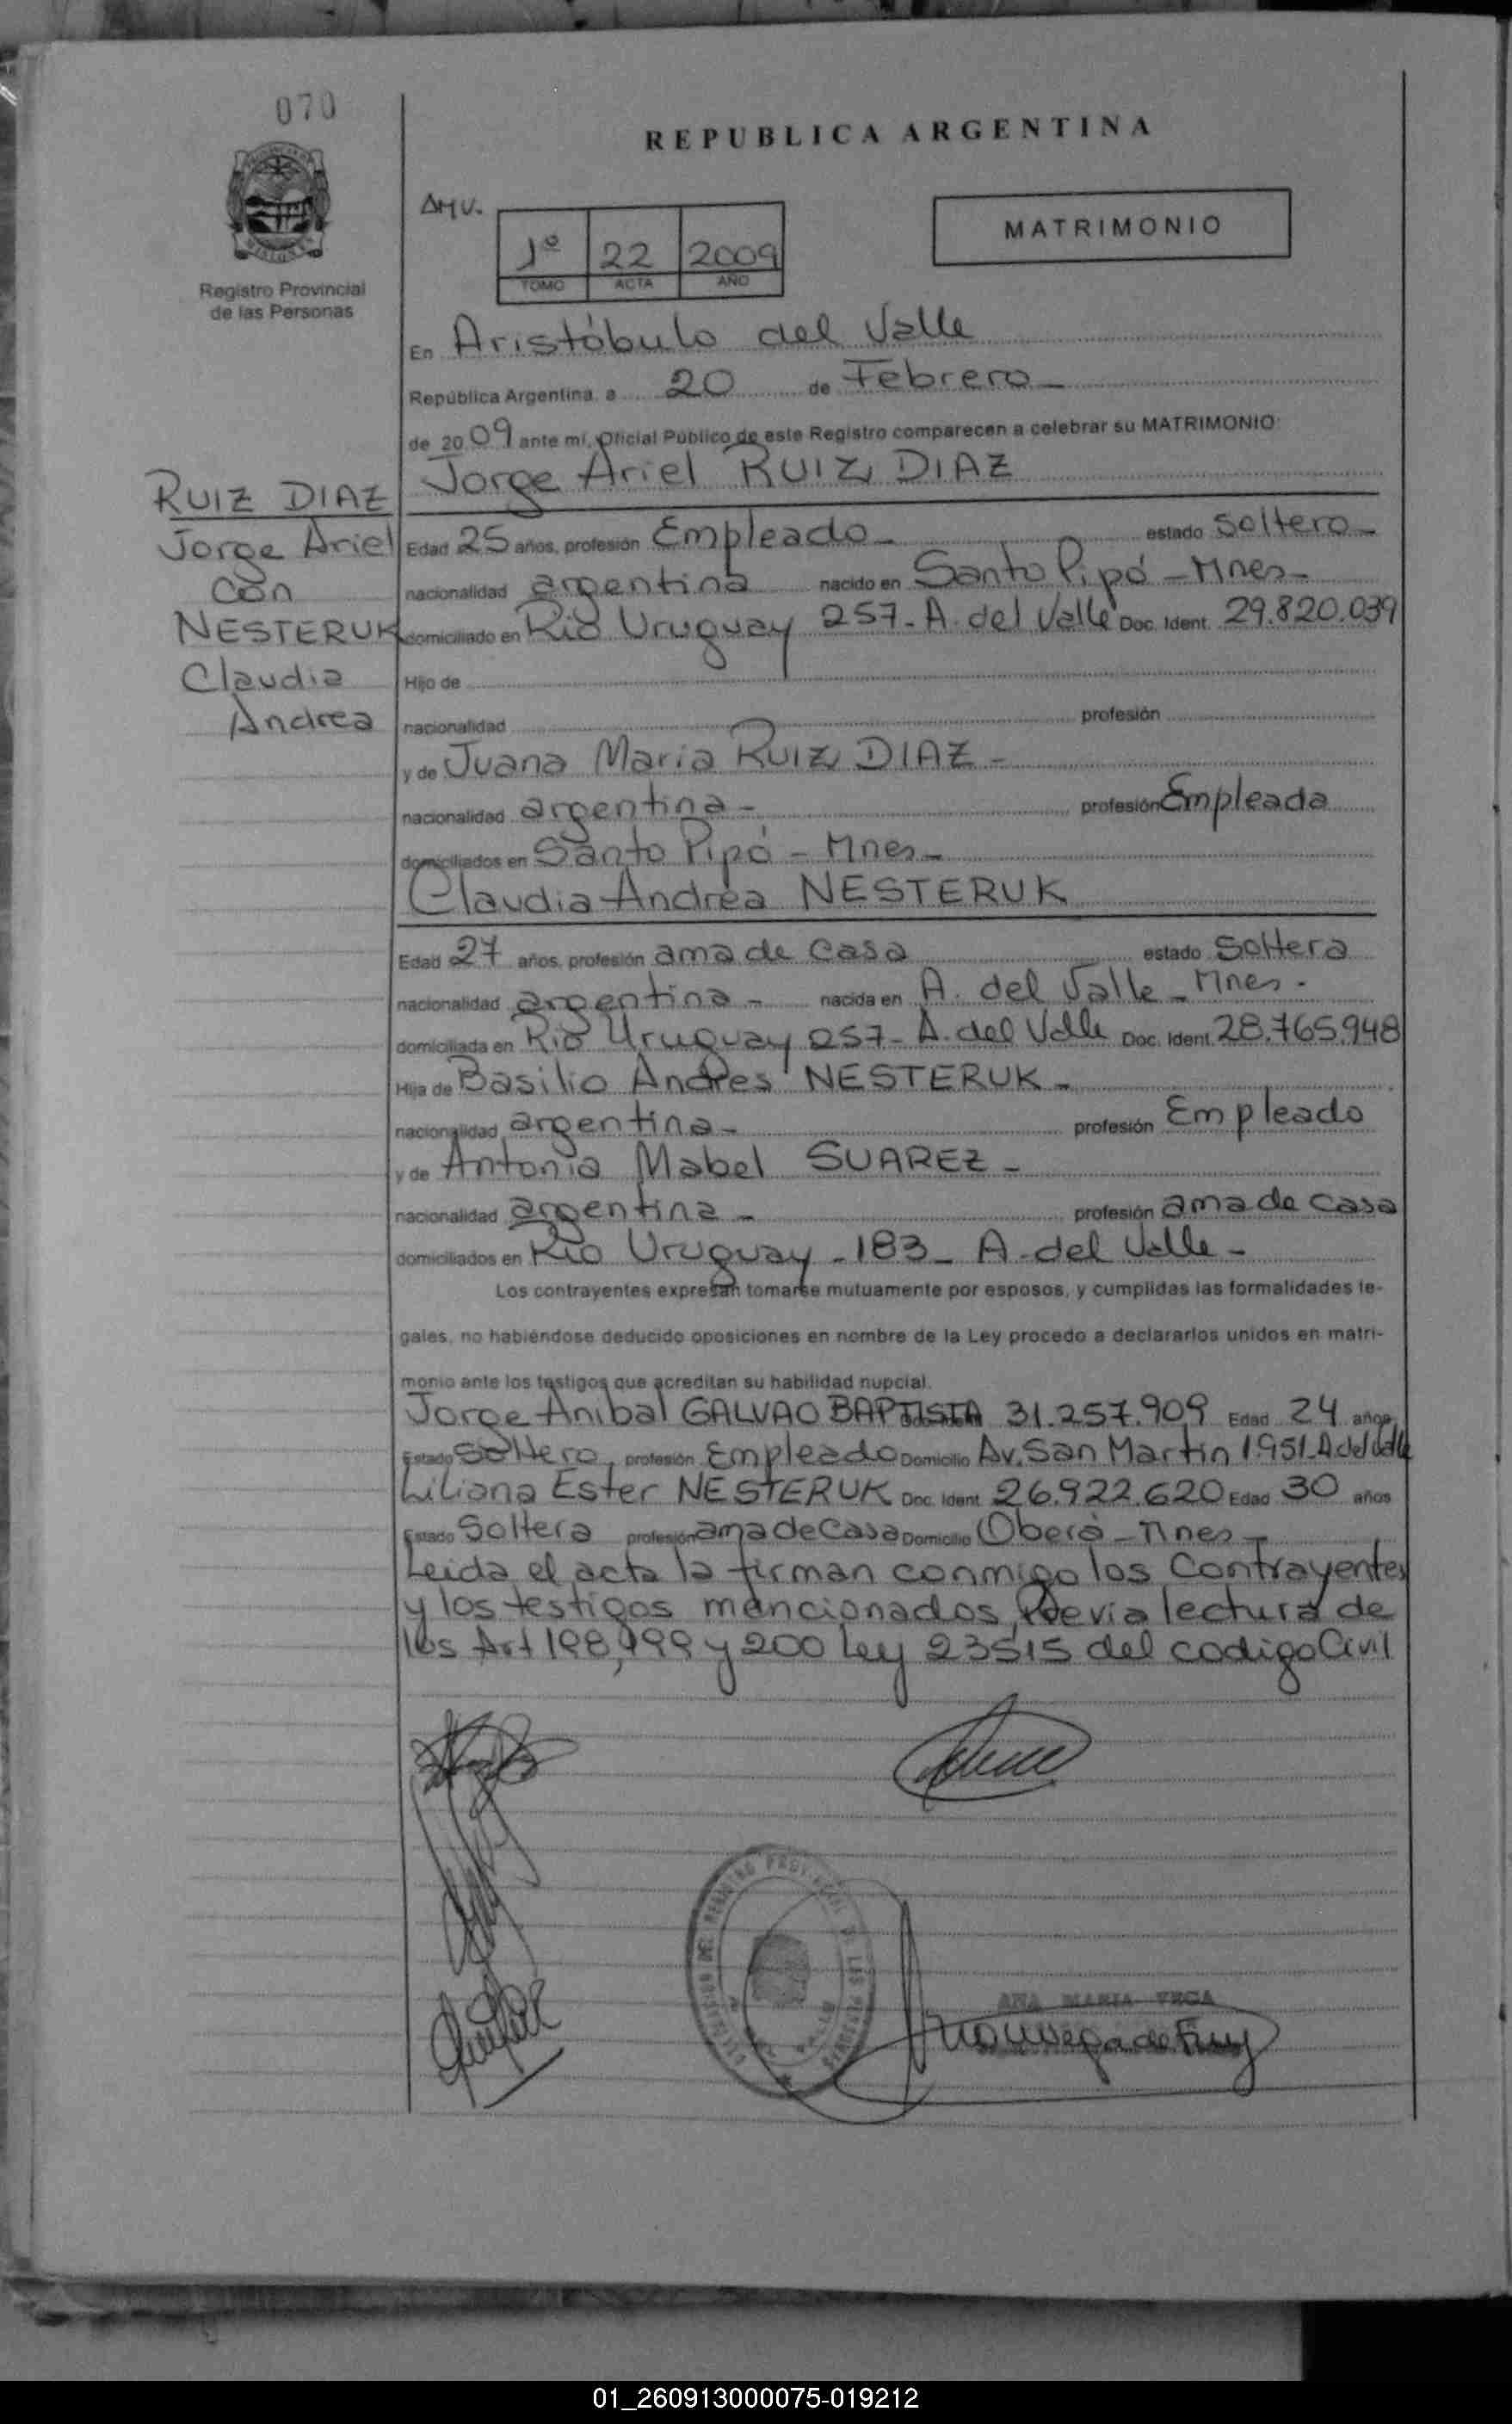 070
REPUBLICA ARGENTINA
AMV.
1º 22 2009
TOMO ACTA AÑO
MATRIMONIO
Registro Provincial
de las Personas
En Aristóbulo del Valle
República Argentina, a 20 de Febrero
de 2009 ante mí, Oficial Público de este Registro comparecen a celebrar su MATRIMONIO:
Jorge Ariel RUIZ DIAZ
RUIZ DIAZ
Jorge Ariel
con
NESTERUK
Claudia
Andrea
Edad 25 años, profesión Empleado - estado soltero -
nacionalidad argentina nacido en Santo Pipó - Mnes -
domiciliado en Río Uruguay 257 - A. del Valle Doc. Ident. 29.820.039
Hijo de
nacionalidad profesión
y de Juana Maria RUIZ DIAZ -
nacionalidad argentina - profesión Empleada
domiciliados en Santo Pipó - Mnes -
Claudia Andrea NESTERUK
Edad 27 años, profesión ama de casa estado soltera
nacionalidad argentina - nacida en A. del Valle - Mnes -
domiciliada en Río Uruguay 257 - A. del Valle Doc. Ident. 28.765.948
Hija de Basilio Andres NESTERUK -
nacionalidad argentina - profesión Empleado
y de Antonia Mabel SUAREZ -
nacionalidad argentina - profesión ama de casa
domiciliados en Río Uruguay - 183 - A. del Valle -
Los contrayentes expresan tomarse mutuamente por esposos, y cumplidas las formalidades le-
gales, no habiéndose deducido oposiciones en nombre de la Ley procedo a declararlos unidos en matri-
monio ante los testigos que acreditan su habilidad nupcial.
Jorge Anibal GALVAO BAPTISTA 31.257.909 Edad 24 años
Estado soltero, profesión Empleado Domicilio Av. San Martin 1951 - A del Valle
Liliana Ester NESTERUK Doc. Ident. 26.922.620 Edad 30 años
Estado Soltera profesión ama de casa Domicilio Oberá - Mnes -
Leida el acta la firman conmigo los Contrayentes
y los testigos mencionados, Previa lectura de
los Art 198, 199 y 200 Ley 23515 del codigo Civil
ANA MARIA VEGA
01_260913000075-019212